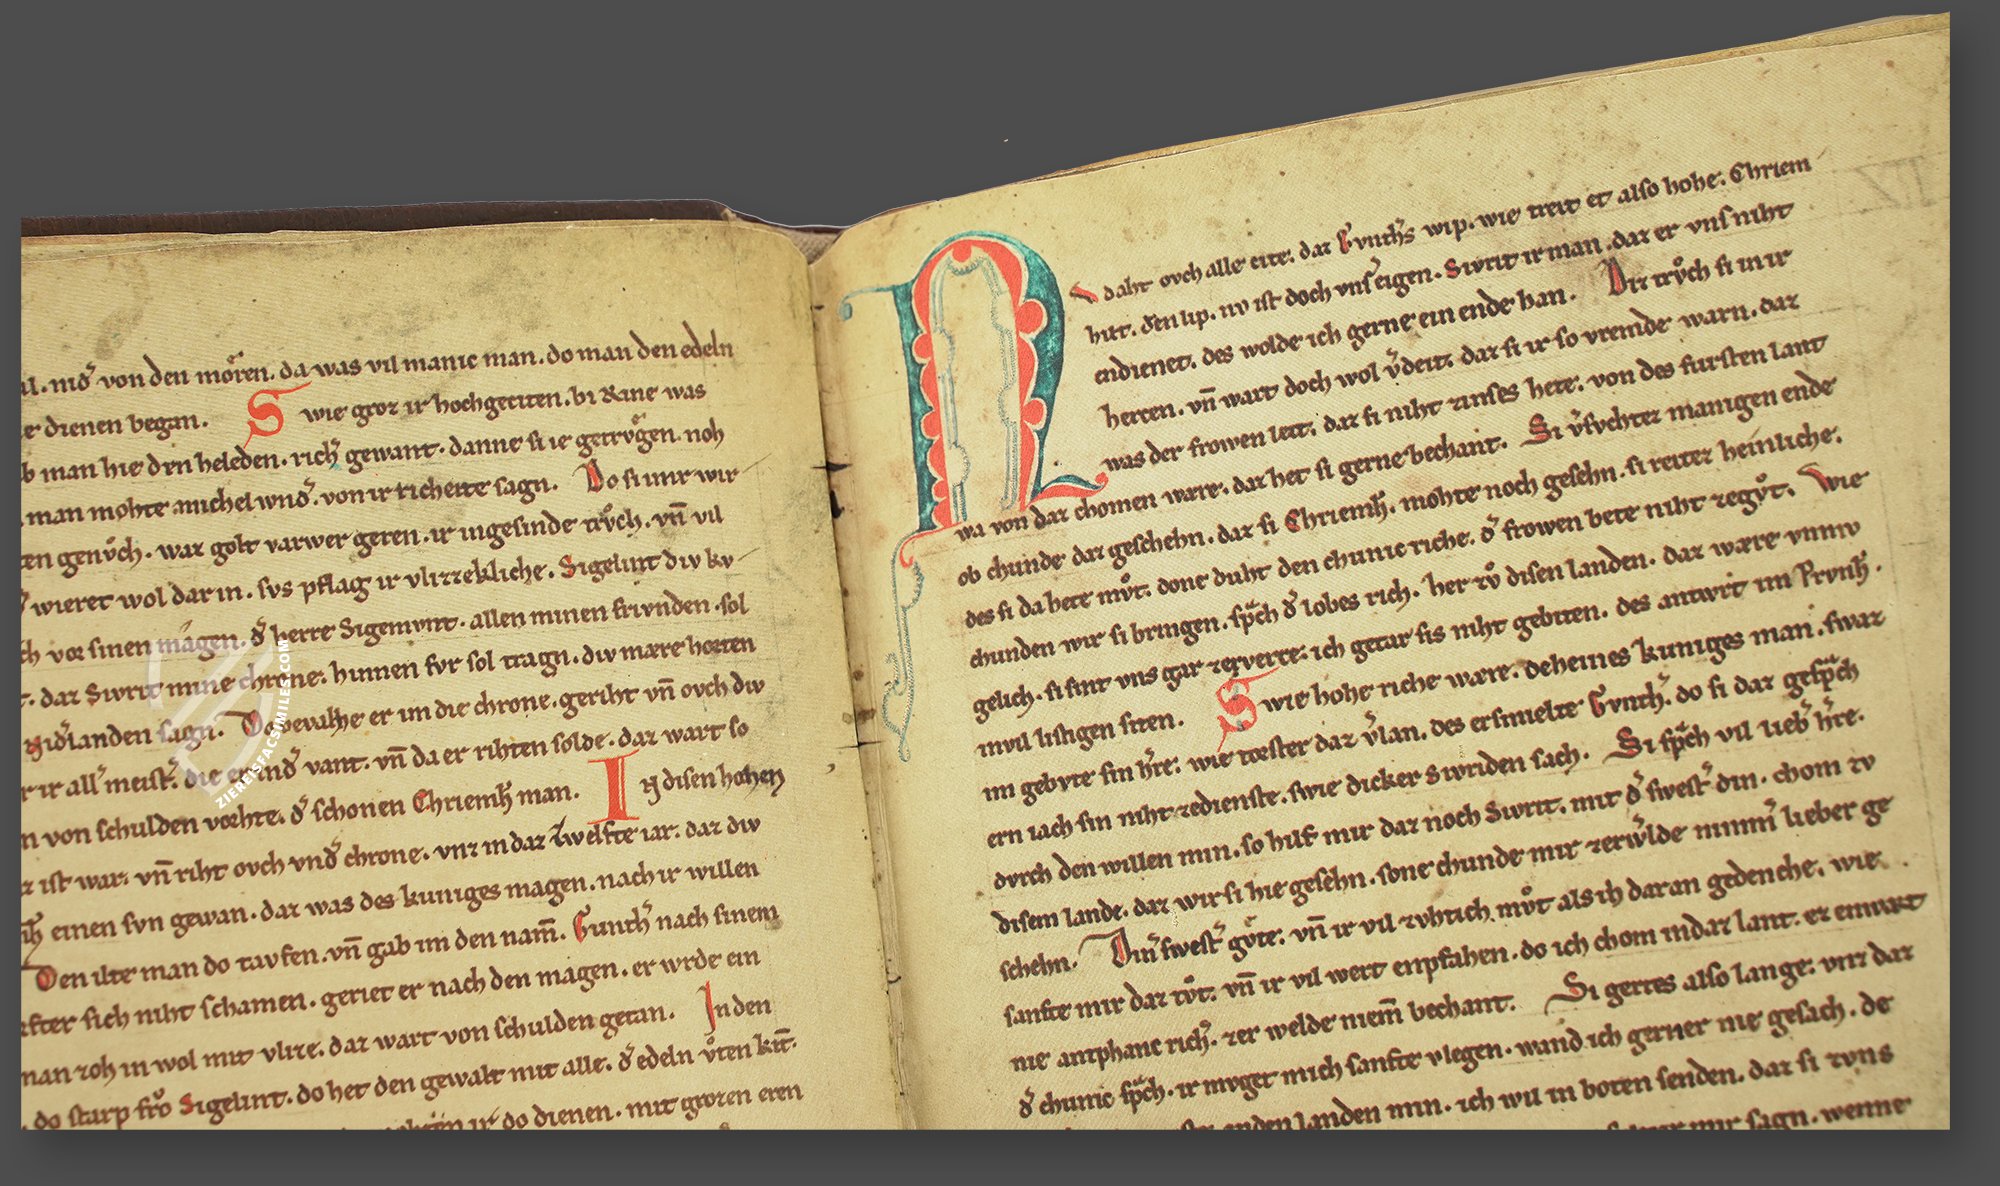 von den môren. da was vil manic man. do man den edeln
dienen began. Swie groz ir hochgeciten. bi Rine was
man hie den heleden. rich͛ gewant. danne si ie getrv̊gen. noh
man mohte michel wnd͛. von ir richeite sagn. Do si inir wir
genv̊ch. waz golt varwer geren. ir ingesinde trv̊ch. vn̄ vil
wieret wol dar in. svs pflag ir vlizzekliche. Sigelint div kv
vor sinen magen. d͛ herre Sigemvnt. allen minen frivnden. sol
daz Sivrit mine chrone. hinnen fvr sol tragn. div mære horten
Nid͛landen sagn. Do bevalhe er im die chrone. geriht vn̄ ovch div
ir all͛ meist͛. die er vnd͛ vant. vn̄ da er rihten solde. daz wart so
von schulden vorhte. d͛ schonen Chriemh͛ man. IN disen hohen
ist war. vn̄ riht ovch vnd͛ chrone. vnz in daz zwelfte iar. daz div
einen svn gewan. daz was des kuniges magen. nach ir willen
Den ilte man do tavfen. vn̄ gab im den nam̄. Gunth͛ nach sinem
sich niht schamen. geriet er nach den magen. er wrde ein
man zoh in wol mit vlize. daz wart von schulden getan. In den
do starp fro͛ Sigelint. do het den gewalt mit alle. d͛ edeln v̊ten kīt.
ir do dienen. mit grozen eren
N
V daht ovch alle cite. daz Gvnth͛s wip. wie treit et also hohe. Chriem
hilt. d͛en lip. nv ist doch vns͛ eigen. Sivrit ir man. daz er vns niht
endienet. des wolde ich gerne ein ende han. Diz trv̊ch si in ir
hercen. vn̄ wart doch wol v͛deit. daz si ir so vremde warn. daz
was der frowen leit. daz si niht zinses hete. von des fursten lant
wa von daz chomen wære. daz het si gerne bechant. Si v͛svchtez manigen ende
ob chunde daz geschehn. daz si Chriemh͛. mohte noch gesehn. si reitez heinliche.
des si da hete mv̊t. done duht den chunic riche. d͛ frowen bete niht zegv̊t. Wie
chunden wir si bringen. sp͛ch d͛ lobes rich. her zv̊ disen landen. daz wære vnmv
gelich. si sint vns gar zeverre. ich getar sis niht gebiten. des antwrt im Prvnh͛.
in vil listigen siten. Swie hohe riche wære. deheines kuniges man. swaz
im gebvte sin h͛re. wie torster daz v͛lan. des ersmielte Gvnth͛. do si daz gesp͛ch
ern iach sin niht zedienste. swie dicker Sivriden sach. Si sp͛ch vil lieb͛ h͛re.
dvrch den willen min. so hilf mir daz noch Sivrit. mit d͛ swest͛ din. chom zv
disem lande. daz wir si hie gesehn. sone chunde mir zerwͤlde nimm͛ lieber ge
schehn. Din͛ swest͛ gv̊te. vn̄ ir vil zvhtich mv̊t als ich daran gedenche. wie
sanfte mir daz tv̊t. vn̄ ir vil wert enpfahen. do ich chom indaz lant. ez enwart
nie antphanc rich͛. zer welde niem̄ bechant. Si gertes also lange. vnz daz
d͛ chunic sp͛ch. ir mvget mich sanfte vlegen. wand ich gerner nie gesach. de
landen min. ich wil in boten senden. daz si zvns
mir sagn. wenne
ZIEREISFACSIMILES.COM